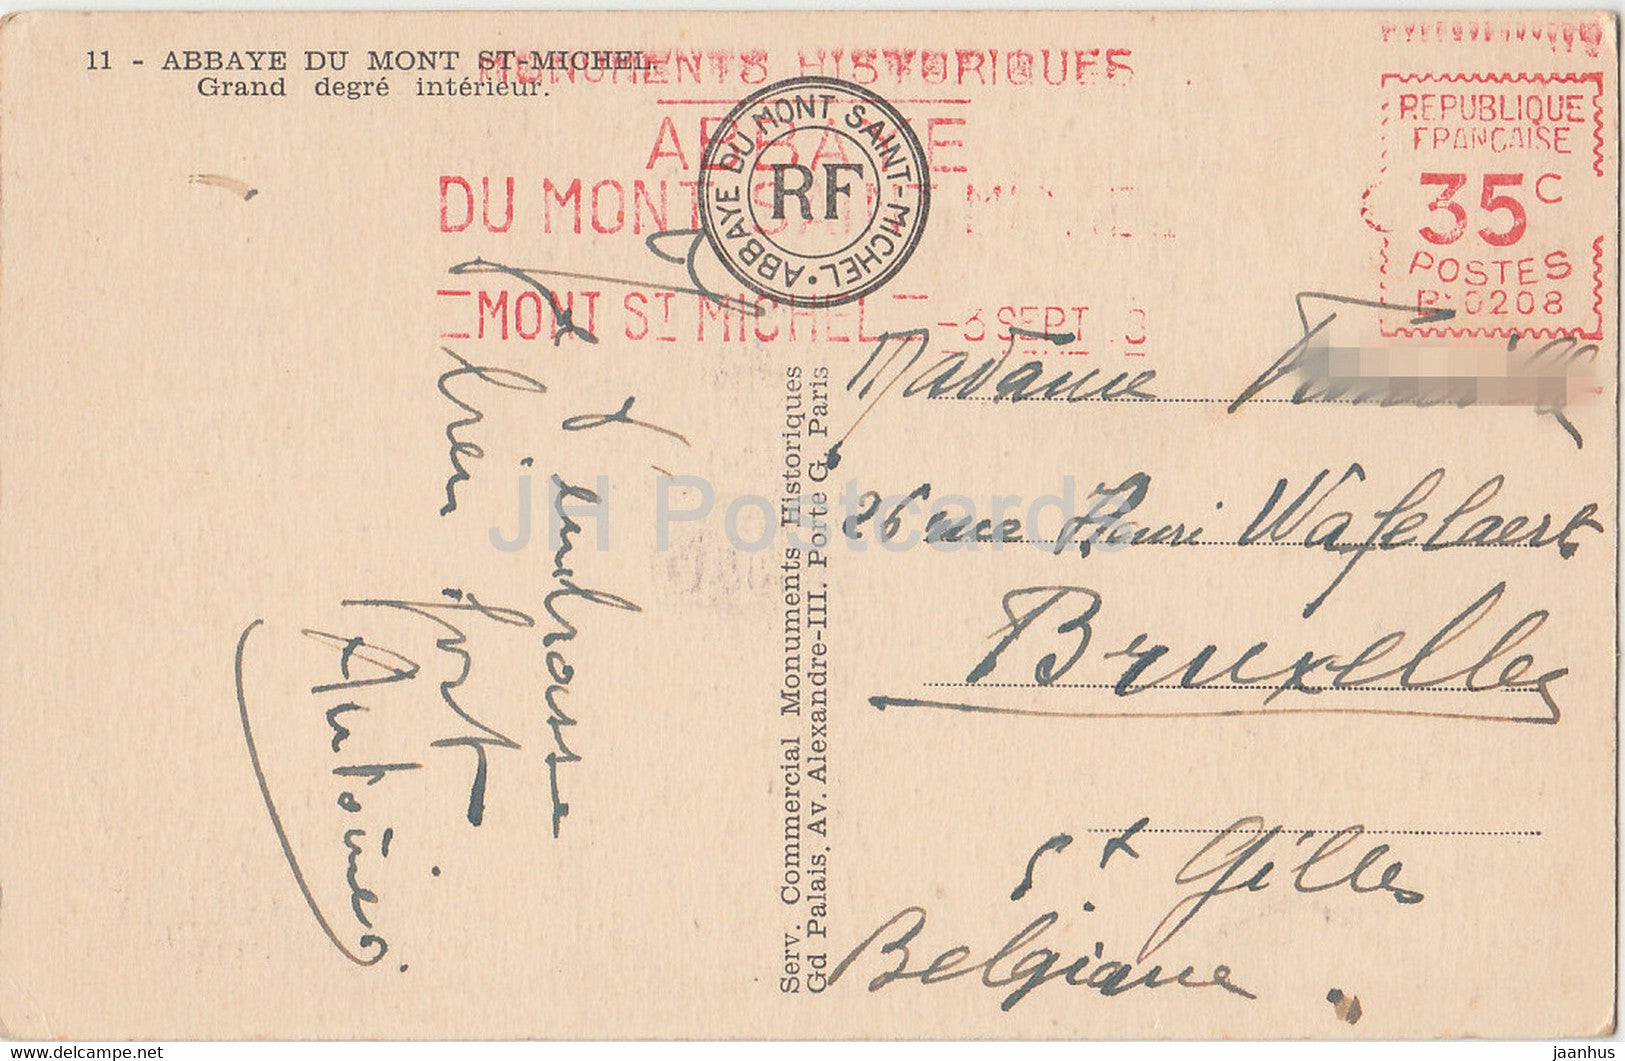 11 - ABBAYE DU MONT ST-MICHEL.
Grand degré intérieur.
MONUMENTS HISTORIQUES
ABBAYE
DU MONT SAINT MICHEL
MONT ST MICHEL -3 SEPT 8
ABBAYE DU MONT SAINT-MICHEL •
RF
REPUBLIQUE
FRANCAISE
35 C
POSTES
0208
t'embrasse
bien fort
Antoine
Serv. Commercial Monuments Historiques
Gd Palais. Av. Alexandre-III. Porte G. Paris
Madame
26 rue Henri Wafelaerts
Bruxelles
St Gilles
Belgique
JH Postcards
11 - ABBAYE DU MONT ST-MICHEL
jaanhus